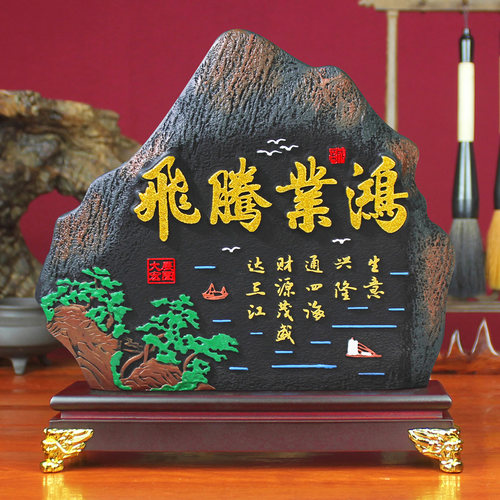 鴻業騰飛
生意
兴隆
通四海
财源茂盛
达三江
大展
宏圖